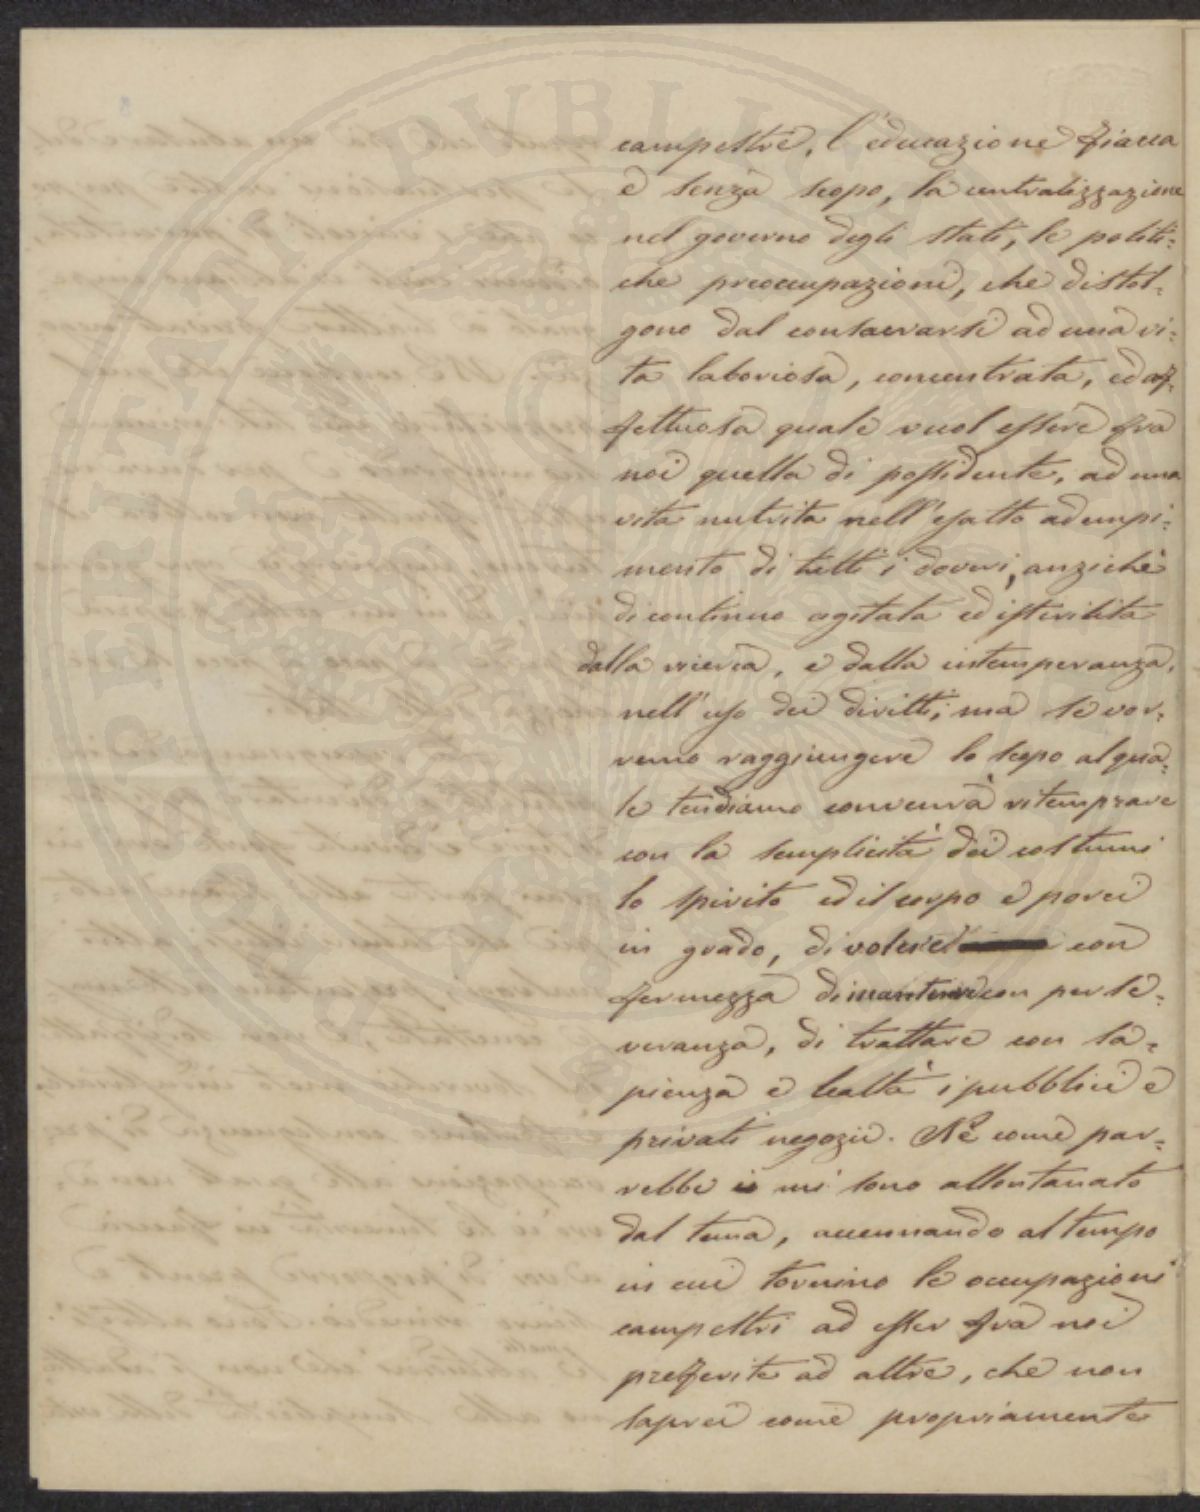 campestre, l'educazione fiacca
e senza scopo, la centralizzazione
nel governo degli stati, le politi=
che preoccupazioni, che distol=
gono dal consacrarsi ad una vi=
ta laboriosa, concentrata, ed af=
fettuosa quale vuol essere fra
noi quella di possidente, ad una
vita nutrita nell'esatto adempi=
mento di tutti i doveri, anzichè
di continuo agitata ed isterilita
dalla inerzia, e dalla intemperanza,
nell'uso dei diritti; ma se vor=
remo raggiungere lo scopo al qua=
le tendiamo converrà ritemprare
con la semplicità dei costumi
lo spirito ed il corpo e porci
in grado, di volere con
fermezza di mantenere con perse=
veranza, di trattare con sa=
pienza e lealtà i pubblici e
privati negozii. Nè come par=
rebbe io mi sono allontanato
dal tema, accennando al tempo
in cui tornino le occupazioni
campestri ad esser fra noi
preferite ad altre, che non
saprei come propriamente
PROSPERITATI PVBLICAE